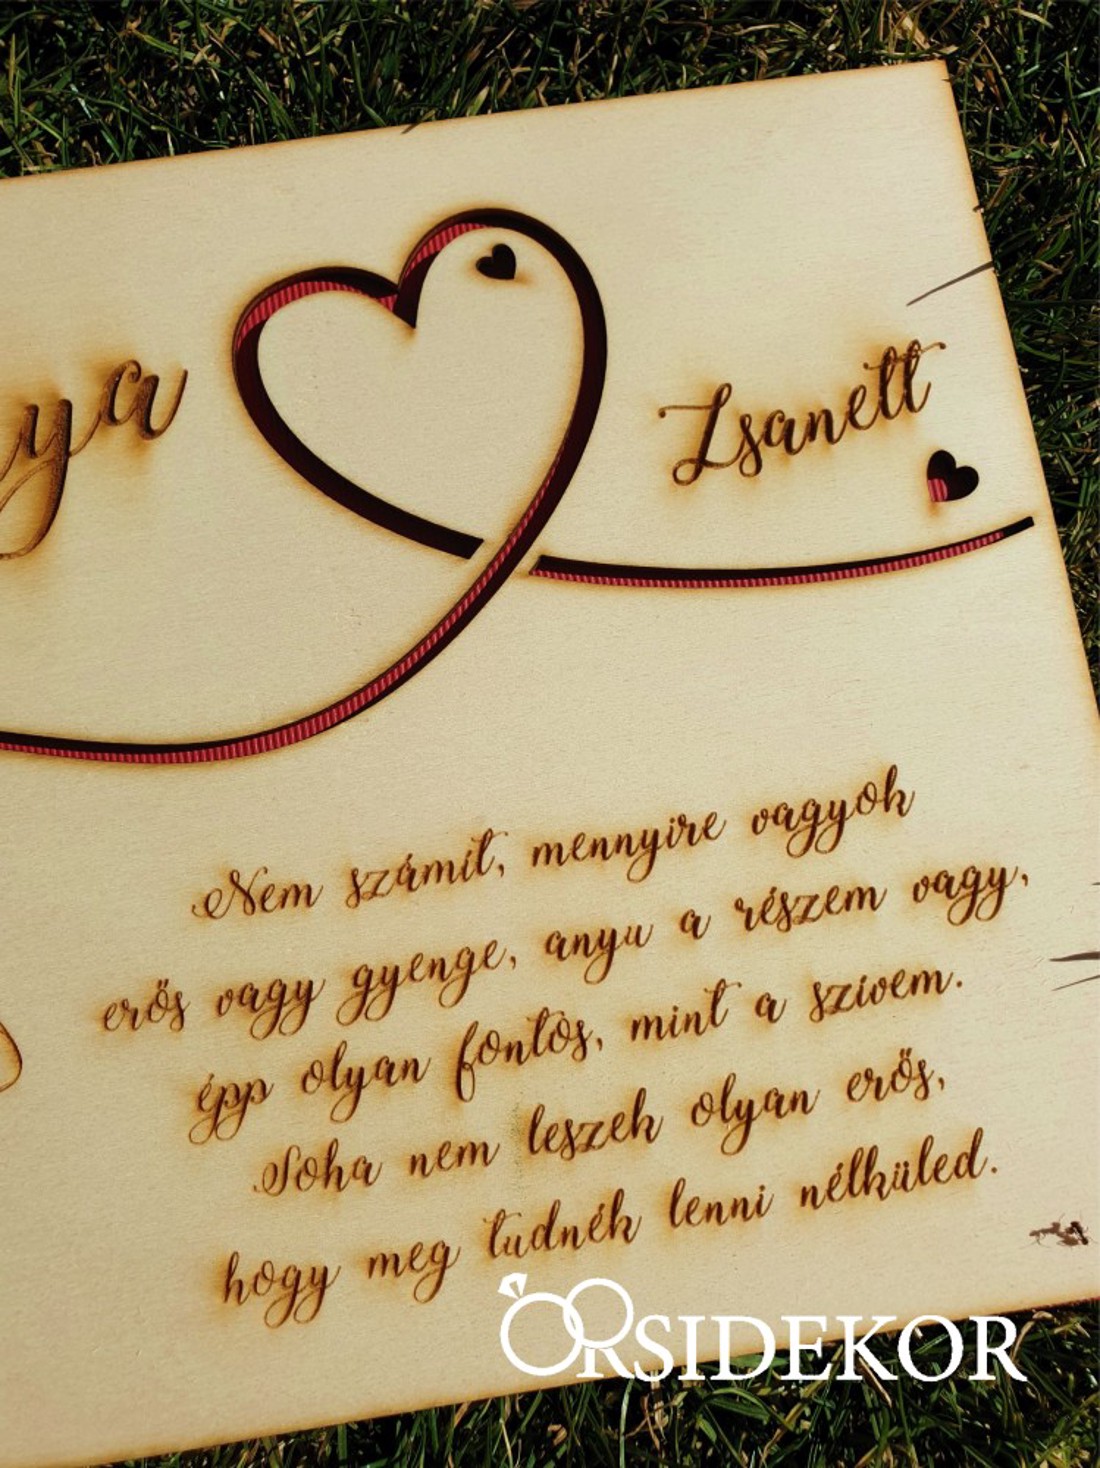 ya
Zsanett
Nem számít, mennyire vagyok
erős vagy gyenge, anyu a részem vagy,
épp olyan fontos, mint a szívem.
Soha nem leszek olyan erős,
hogy meg tudnék lenni nélküled.
ORSIDEKOR